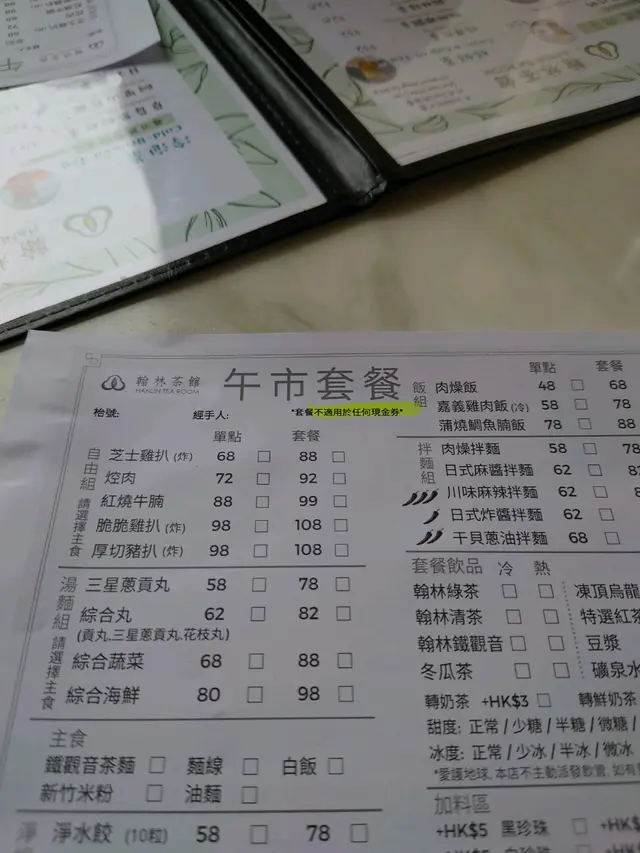 翰林茶館
HANLIN TEA ROOM
午市套餐
枱號:
經手人:
*套餐不適用於任何現金券*
單點 套餐
自由組 請選擇主食
芝士雞扒 (炸) 68 □ 88 □
焢肉 72 □ 92 □
紅燒牛腩 88 □ 99 □
脆脆雞扒 (炸) 98 □ 108 □
厚切豬扒 (炸) 98 □ 108 □
湯麵組 請選擇主食
三星蔥貢丸 58 □ 78 □
綜合丸 62 □ 82 □
(貢丸.三星蔥貢丸.花枝丸)
綜合蔬菜 68 □ 88 □
綜合海鮮 80 □ 98 □
主食
鐵觀音茶麵 □ 麵線 □ 白飯 □
新竹米粉 □ 油麵 □
淨
淨水餃 (10粒) 58 □ 78 □
單點 套餐
飯組
肉燥飯 48 □ 68
嘉義雞肉飯 (冷) 58 □ 78
蒲燒鯛魚腩飯 78 □ 88
拌麵組
肉燥拌麵 58 □ 78
日式麻醬拌麵 62 □
川味麻辣拌麵 62 □
日式炸醬拌麵 62 □
干貝蔥油拌麵 68 □
套餐飲品 冷 熱
翰林綠茶 □ □ 凍頂烏龍
翰林清茶 □ □ 特選紅茶
翰林鐵觀音 □ □ 豆漿
冬瓜茶 □ □ 礦泉水
轉奶茶 +HK$3 □ 轉鮮奶茶
甜度: 正常 / 少糖 / 半糖 / 微糖 /
冰度: 正常 / 少冰 / 半冰 / 微冰
*愛護地球, 本店不主動派發飲管, 如有
加料區
+HK$5 黑珍珠 □ +HK$